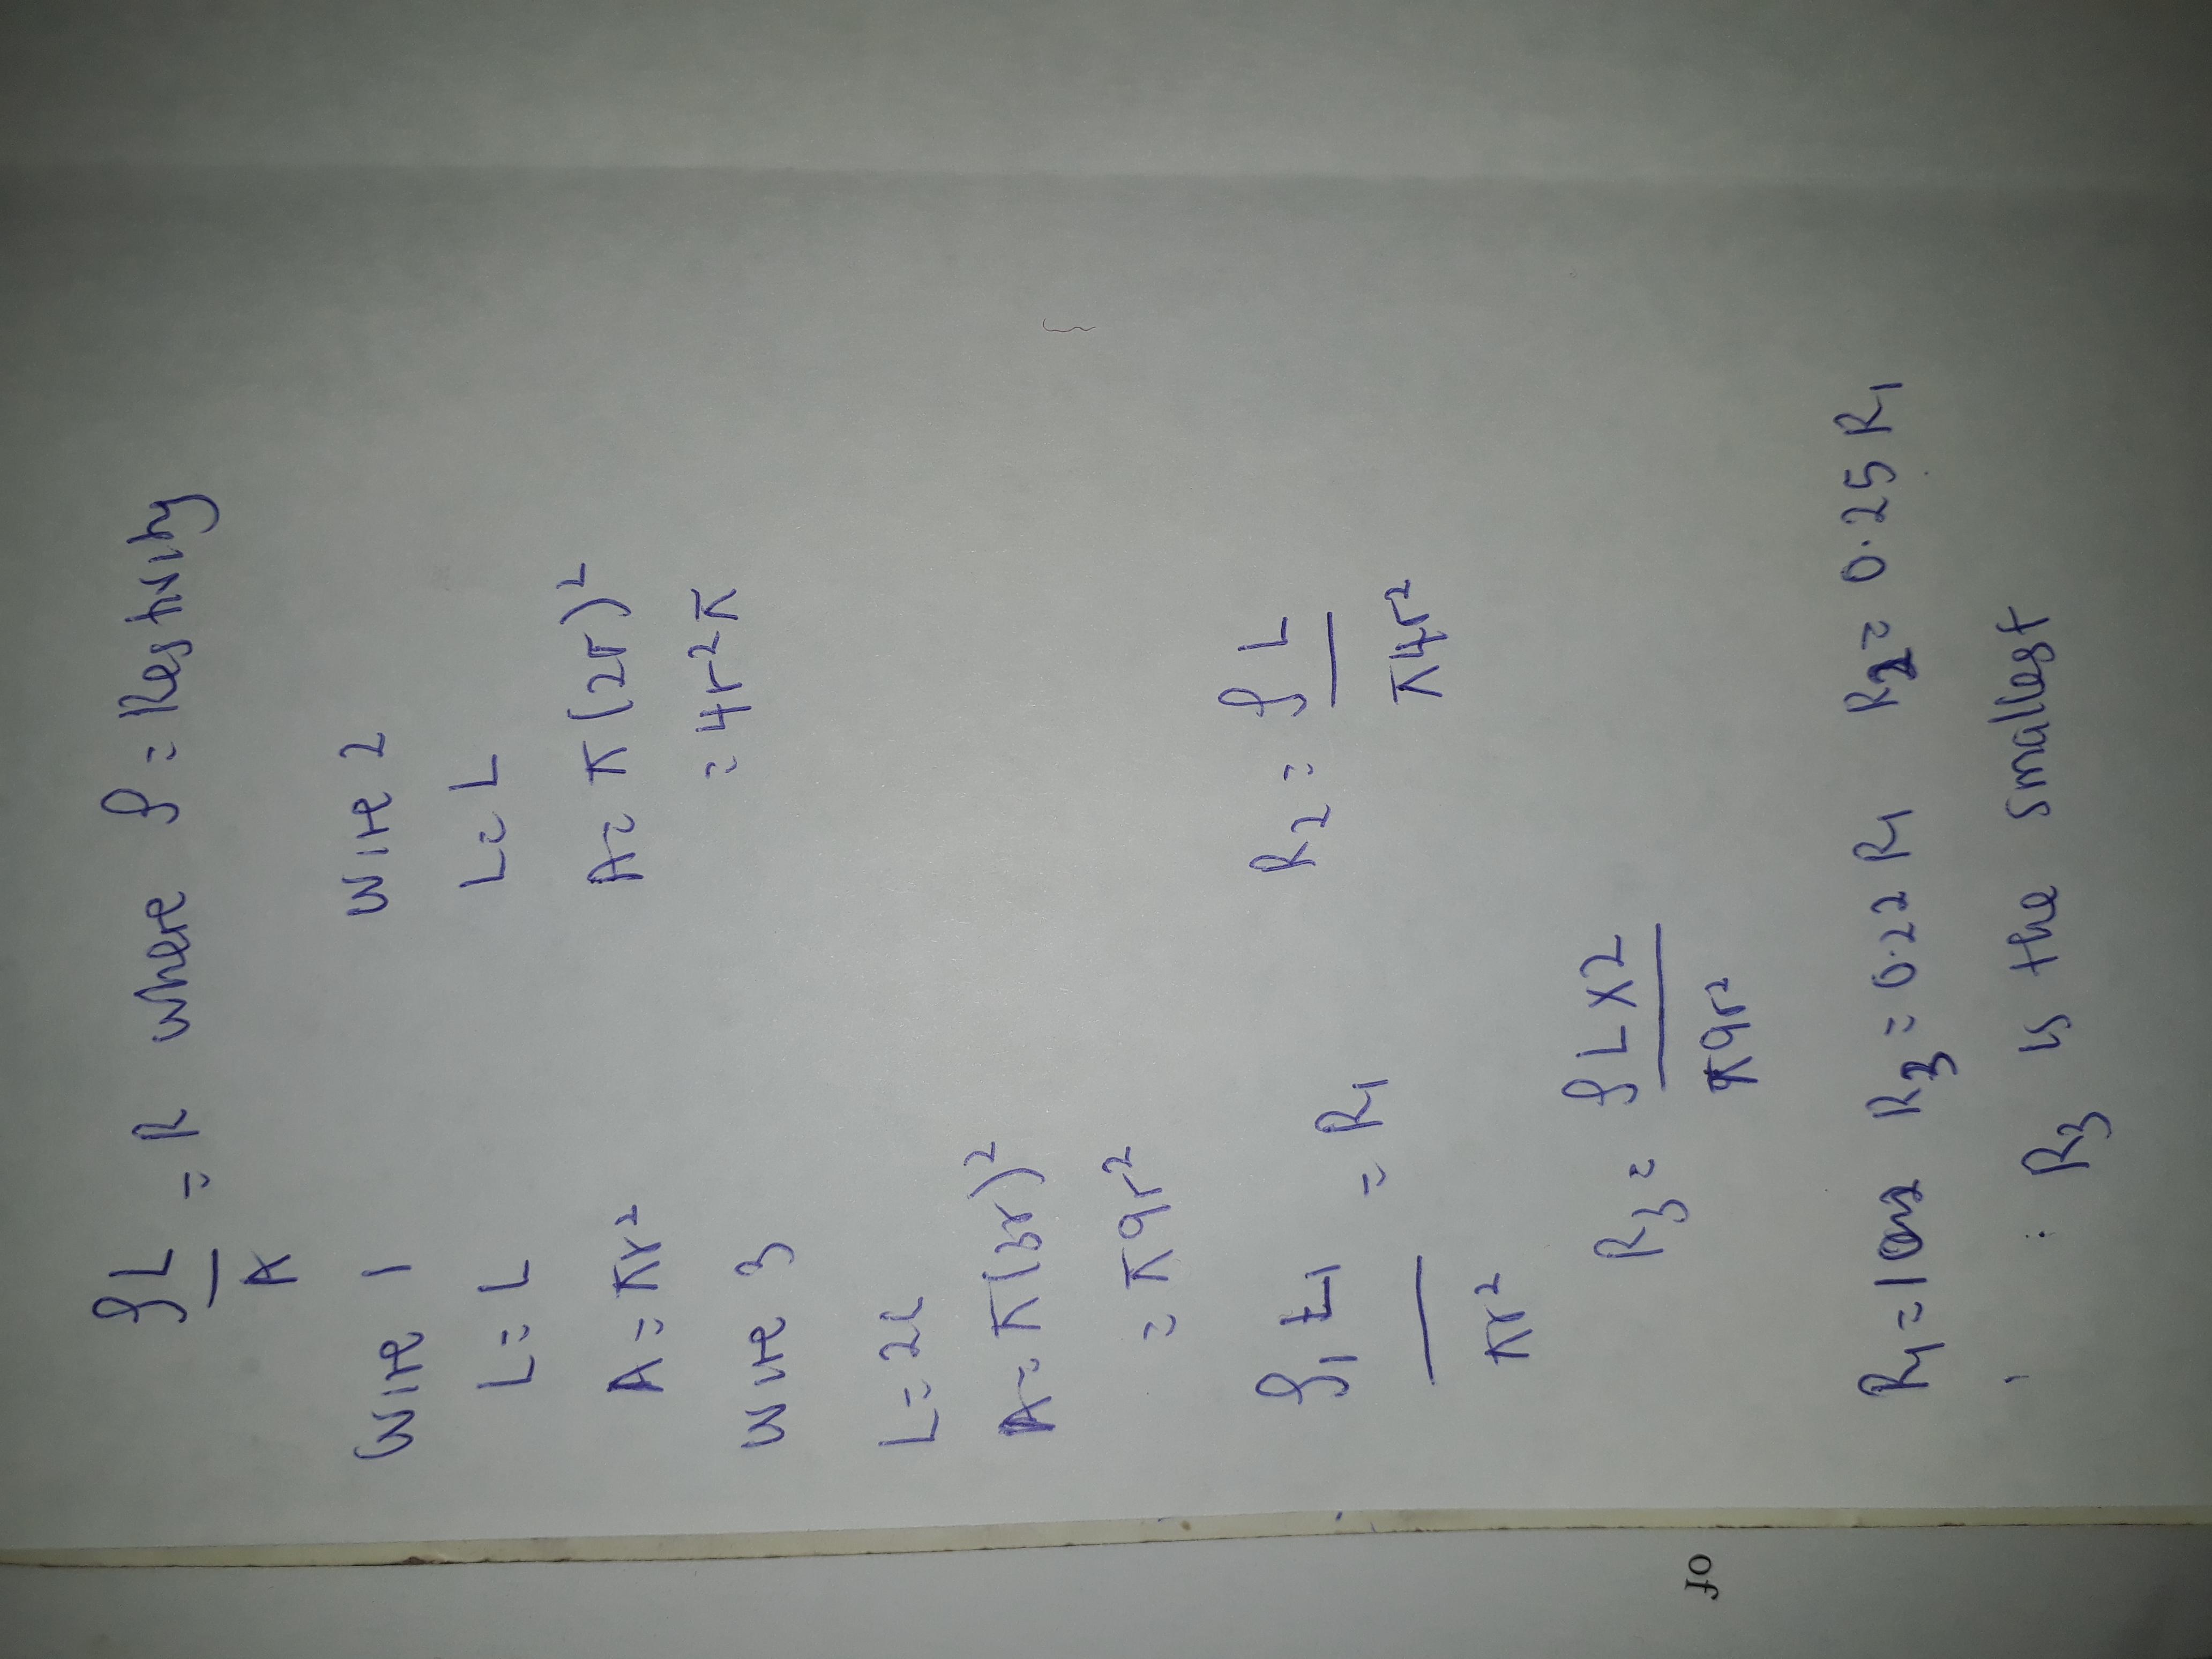 ρL/A = R where ρ = Restivity
Wire 1
L = L
A = πr²
Wire 2
L = L
A = π(2r)²
= 4r²π
Wire 3
L = 2L
A = π(3r)²
= π9r²
ρ₁ L₁/πr² = R₁
R₂ = ρL/π4r²
R₃ = ρL×2/π9r²
R₁ = 1 R₃ = 0.22 R₁ R₂ = 0.25 R₁
∴ R₃ is the smallest
of